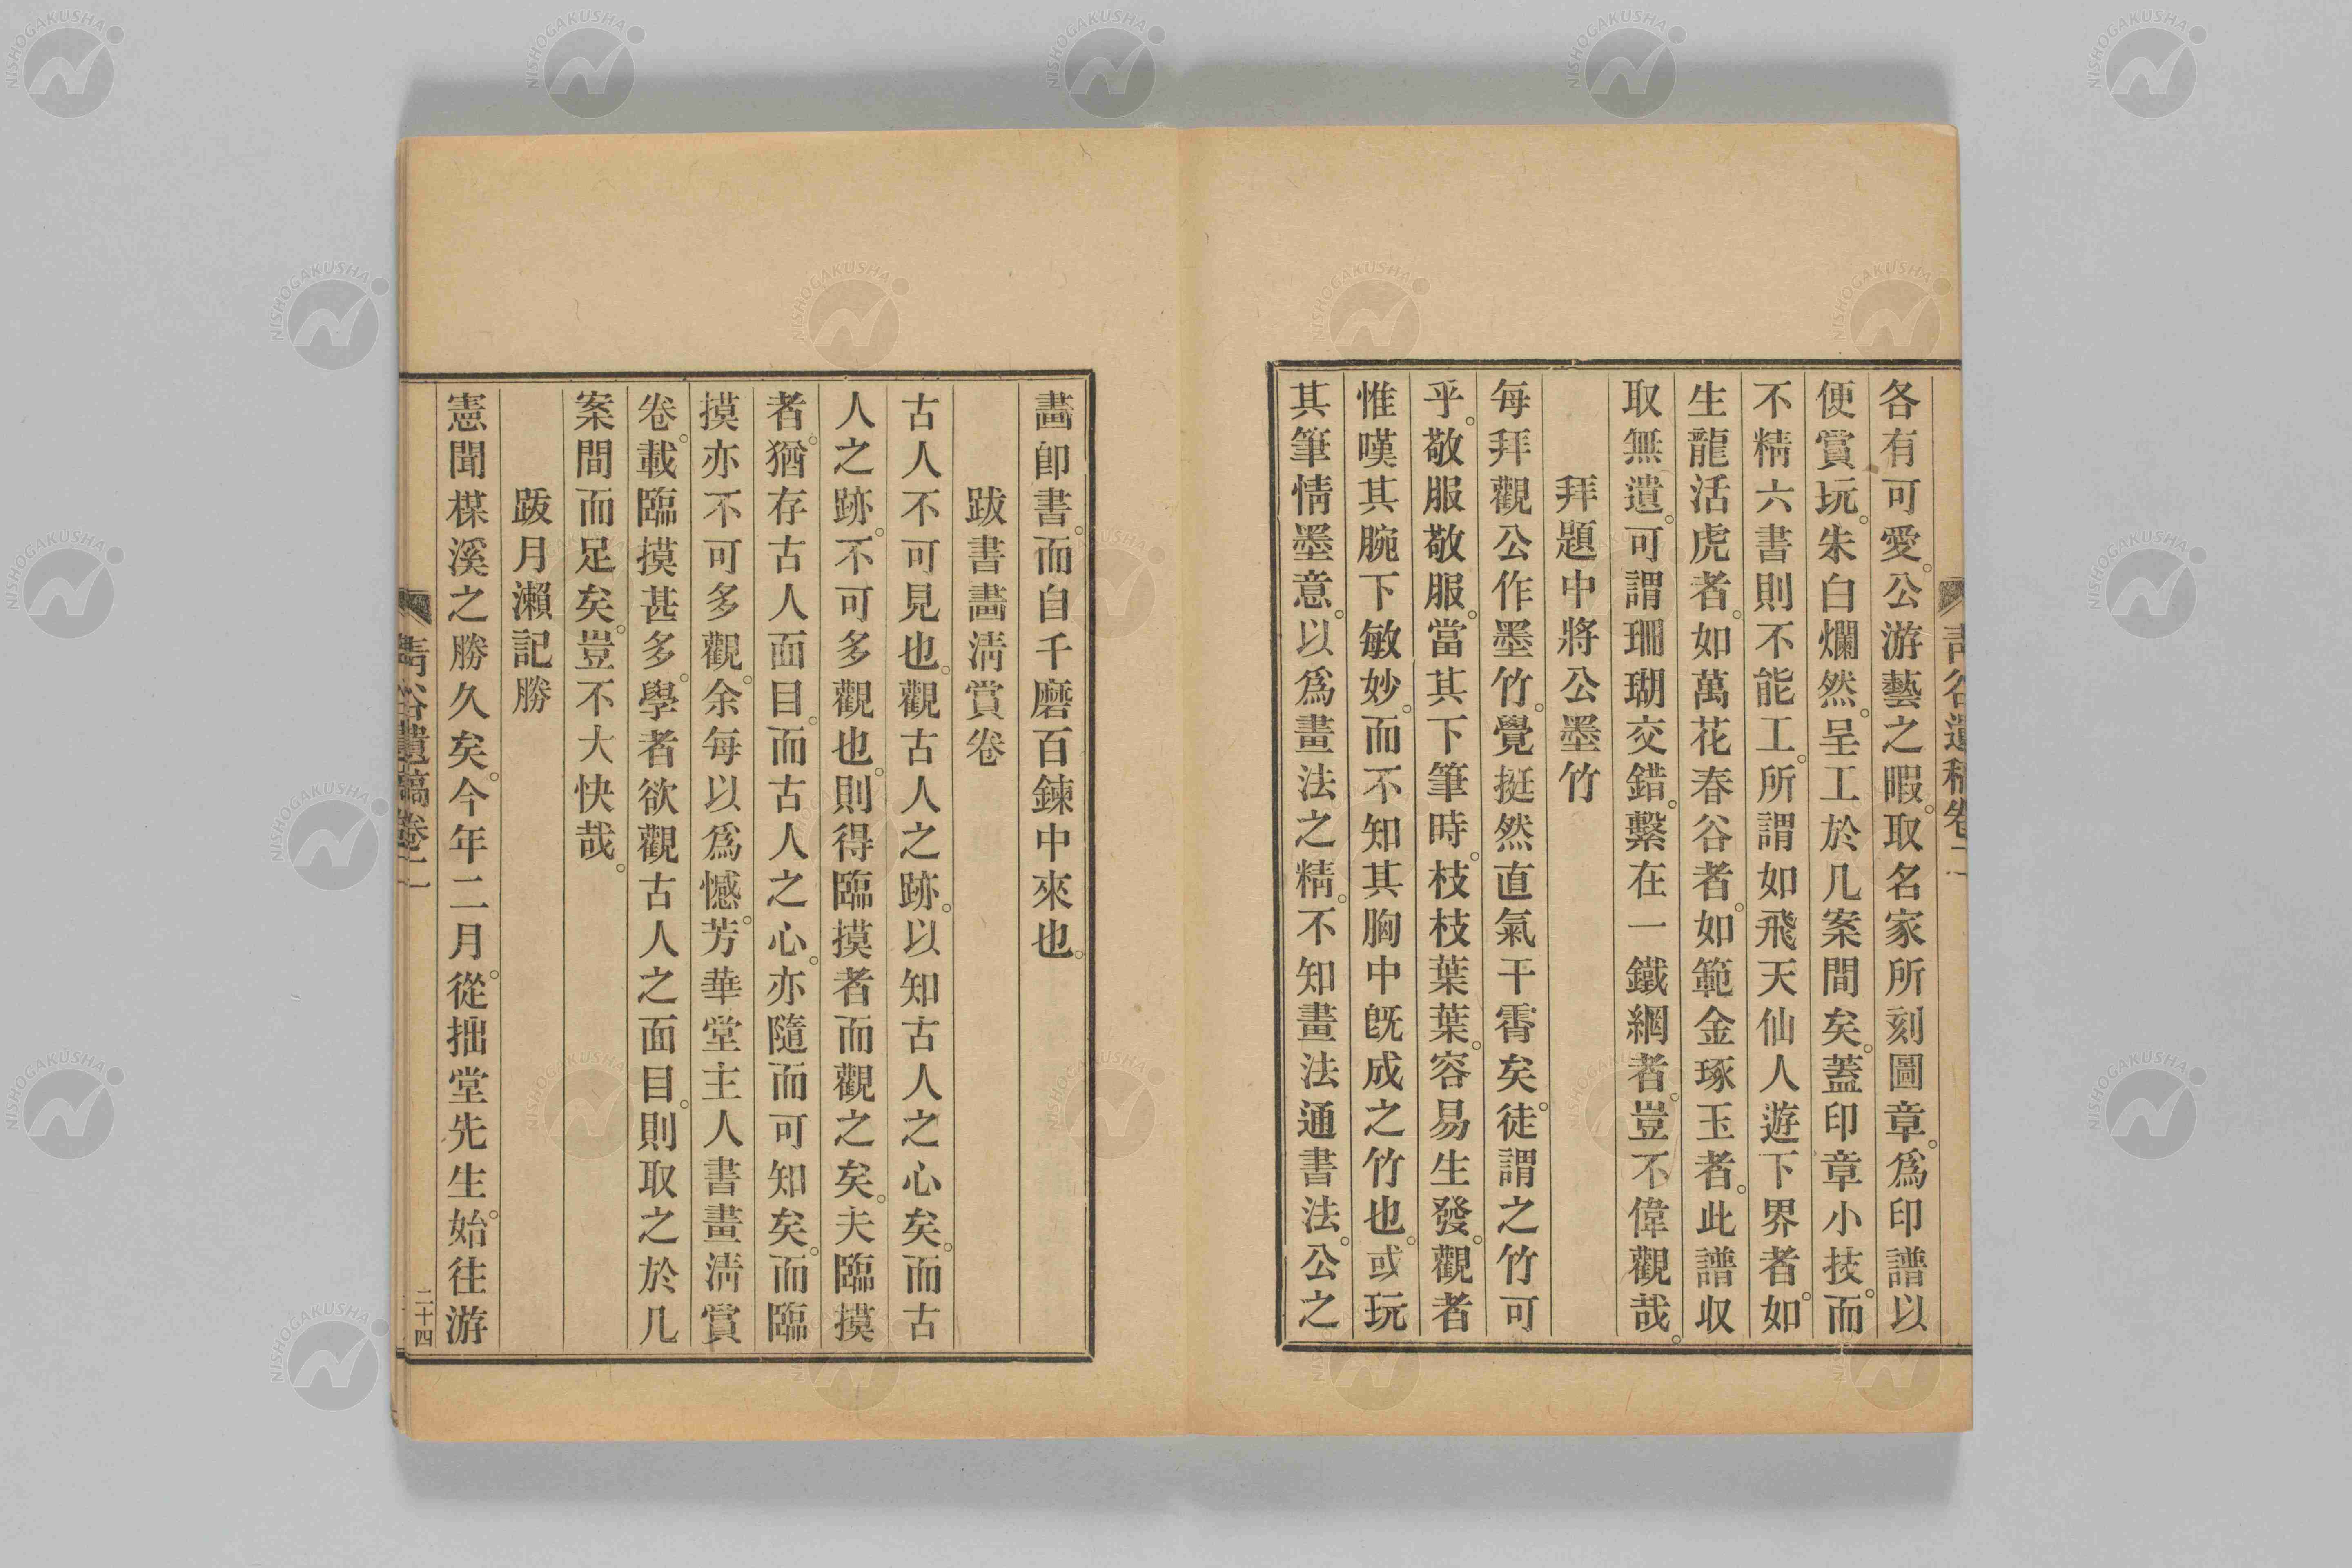 靑谷遺稿卷二
各有可愛。公游藝之暇。取名家所刻圖章。爲印譜以
便賞玩。朱白爛然。呈工於几案間矣。蓋印章小技。而
不精六書則不能工。所謂如飛天仙人遊下界者。如
生龍活虎者。如萬花春谷者。如範金琢玉者。此譜収
取無遺。可謂珊瑚交錯。繫在一鐵網者。豈不偉觀哉。
拜題中將公墨竹
每拜觀公作墨竹。覺挺然直氣干霄矣。徒謂之竹可
乎。敬服敬服。當其下筆時。枝枝葉葉。容易生發。觀者
惟嘆其腕下敏妙。而不知其胸中旣成之竹也。或玩
其筆情墨意。以爲畫法之精。不知畫法通書法。公之
畵卽書。而自千磨百鍊中來也。
跋書畵淸賞卷
古人不可見也。觀古人之跡。以知古人之心矣。而古
人之跡。不可多觀也。則得臨摸者而觀之矣。夫臨摸
者。猶存古人面目。而古人之心。亦隨而可知矣。而臨
摸亦不可多觀。余每以爲憾。芳華堂主人書畫淸賞
卷。載臨摸甚多。學者欲觀古人之面目。則取之於几
案間而足矣。豈不大快哉。
跋月瀨記勝
憲聞楳溪之勝久矣。今年二月。從拙堂先生。始往游
靑谷遺稿卷二
二十四
NISHOGAKUSHA